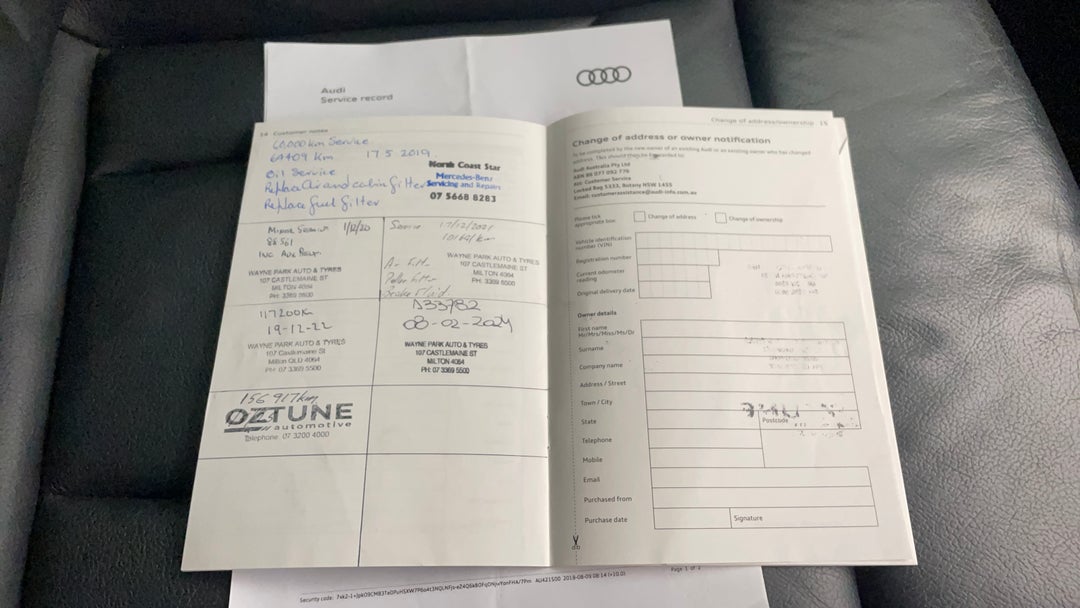 Audi
Service record
14 Customer notes
60,000km Service
64409 Km 17 5 2019
Oil Service
Replace Air and cabin filter
Replace fuel filter
North Coast Star
Mercedes-Benz
Servicing and Repairs
07 5668 8283
Minor Service 1/12/20
88561
WAYNE PARK AUTO & TYRES
107 CASTLEMAINE ST
MILTON 4064
PH: 3369 5500
Service 17/12/2021
Air filt
Pollen filter
Brake Fluid
WAYNE PARK AUTO & TYRES
107 CASTLEMAINE ST
MILTON 4064
PH: 3369 5500
117200k
19-12-22
WAYNE PARK AUTO & TYRES
107 Castlemaine St
Milton QLD 4064
PH: 07 3369 5500
133782
08-02-2024
WAYNE PARK AUTO & TYRES
107 CASTLEMAINE ST
MILTON 4064
PH: 07 3369 5500
156917km
OZTUNE
automotive
Telephone. 07 3200 4000
Change of address/ownership 15
Change of address or owner notification
To be completed by the new owner of an existing Audi or an existing owner who has changed
address. This should then be forwarded to:
Audi Australia Pty Ltd
ABN 86 077 092 776
Att: Customer Service
Locked Bag 5333, Botany NSW 1455
Email: customerassistance@audi-info.com.au
Please tick
appropriate box:
Change of address
Change of ownership
Vehicle identification
number (VIN)
Registration number
Current odometer
reading
Original delivery date
Owner details
First name
Mr/Mrs/Miss/Ms/Dr
Surname
Company name
Address / Street
Town / City
State
Postcode
Telephone
Mobile
Email
Purchased from
Purchase date
Signature
Security code:
AU421S00 2018-08-09 08:14 (+10.0)
Page 1 of 2